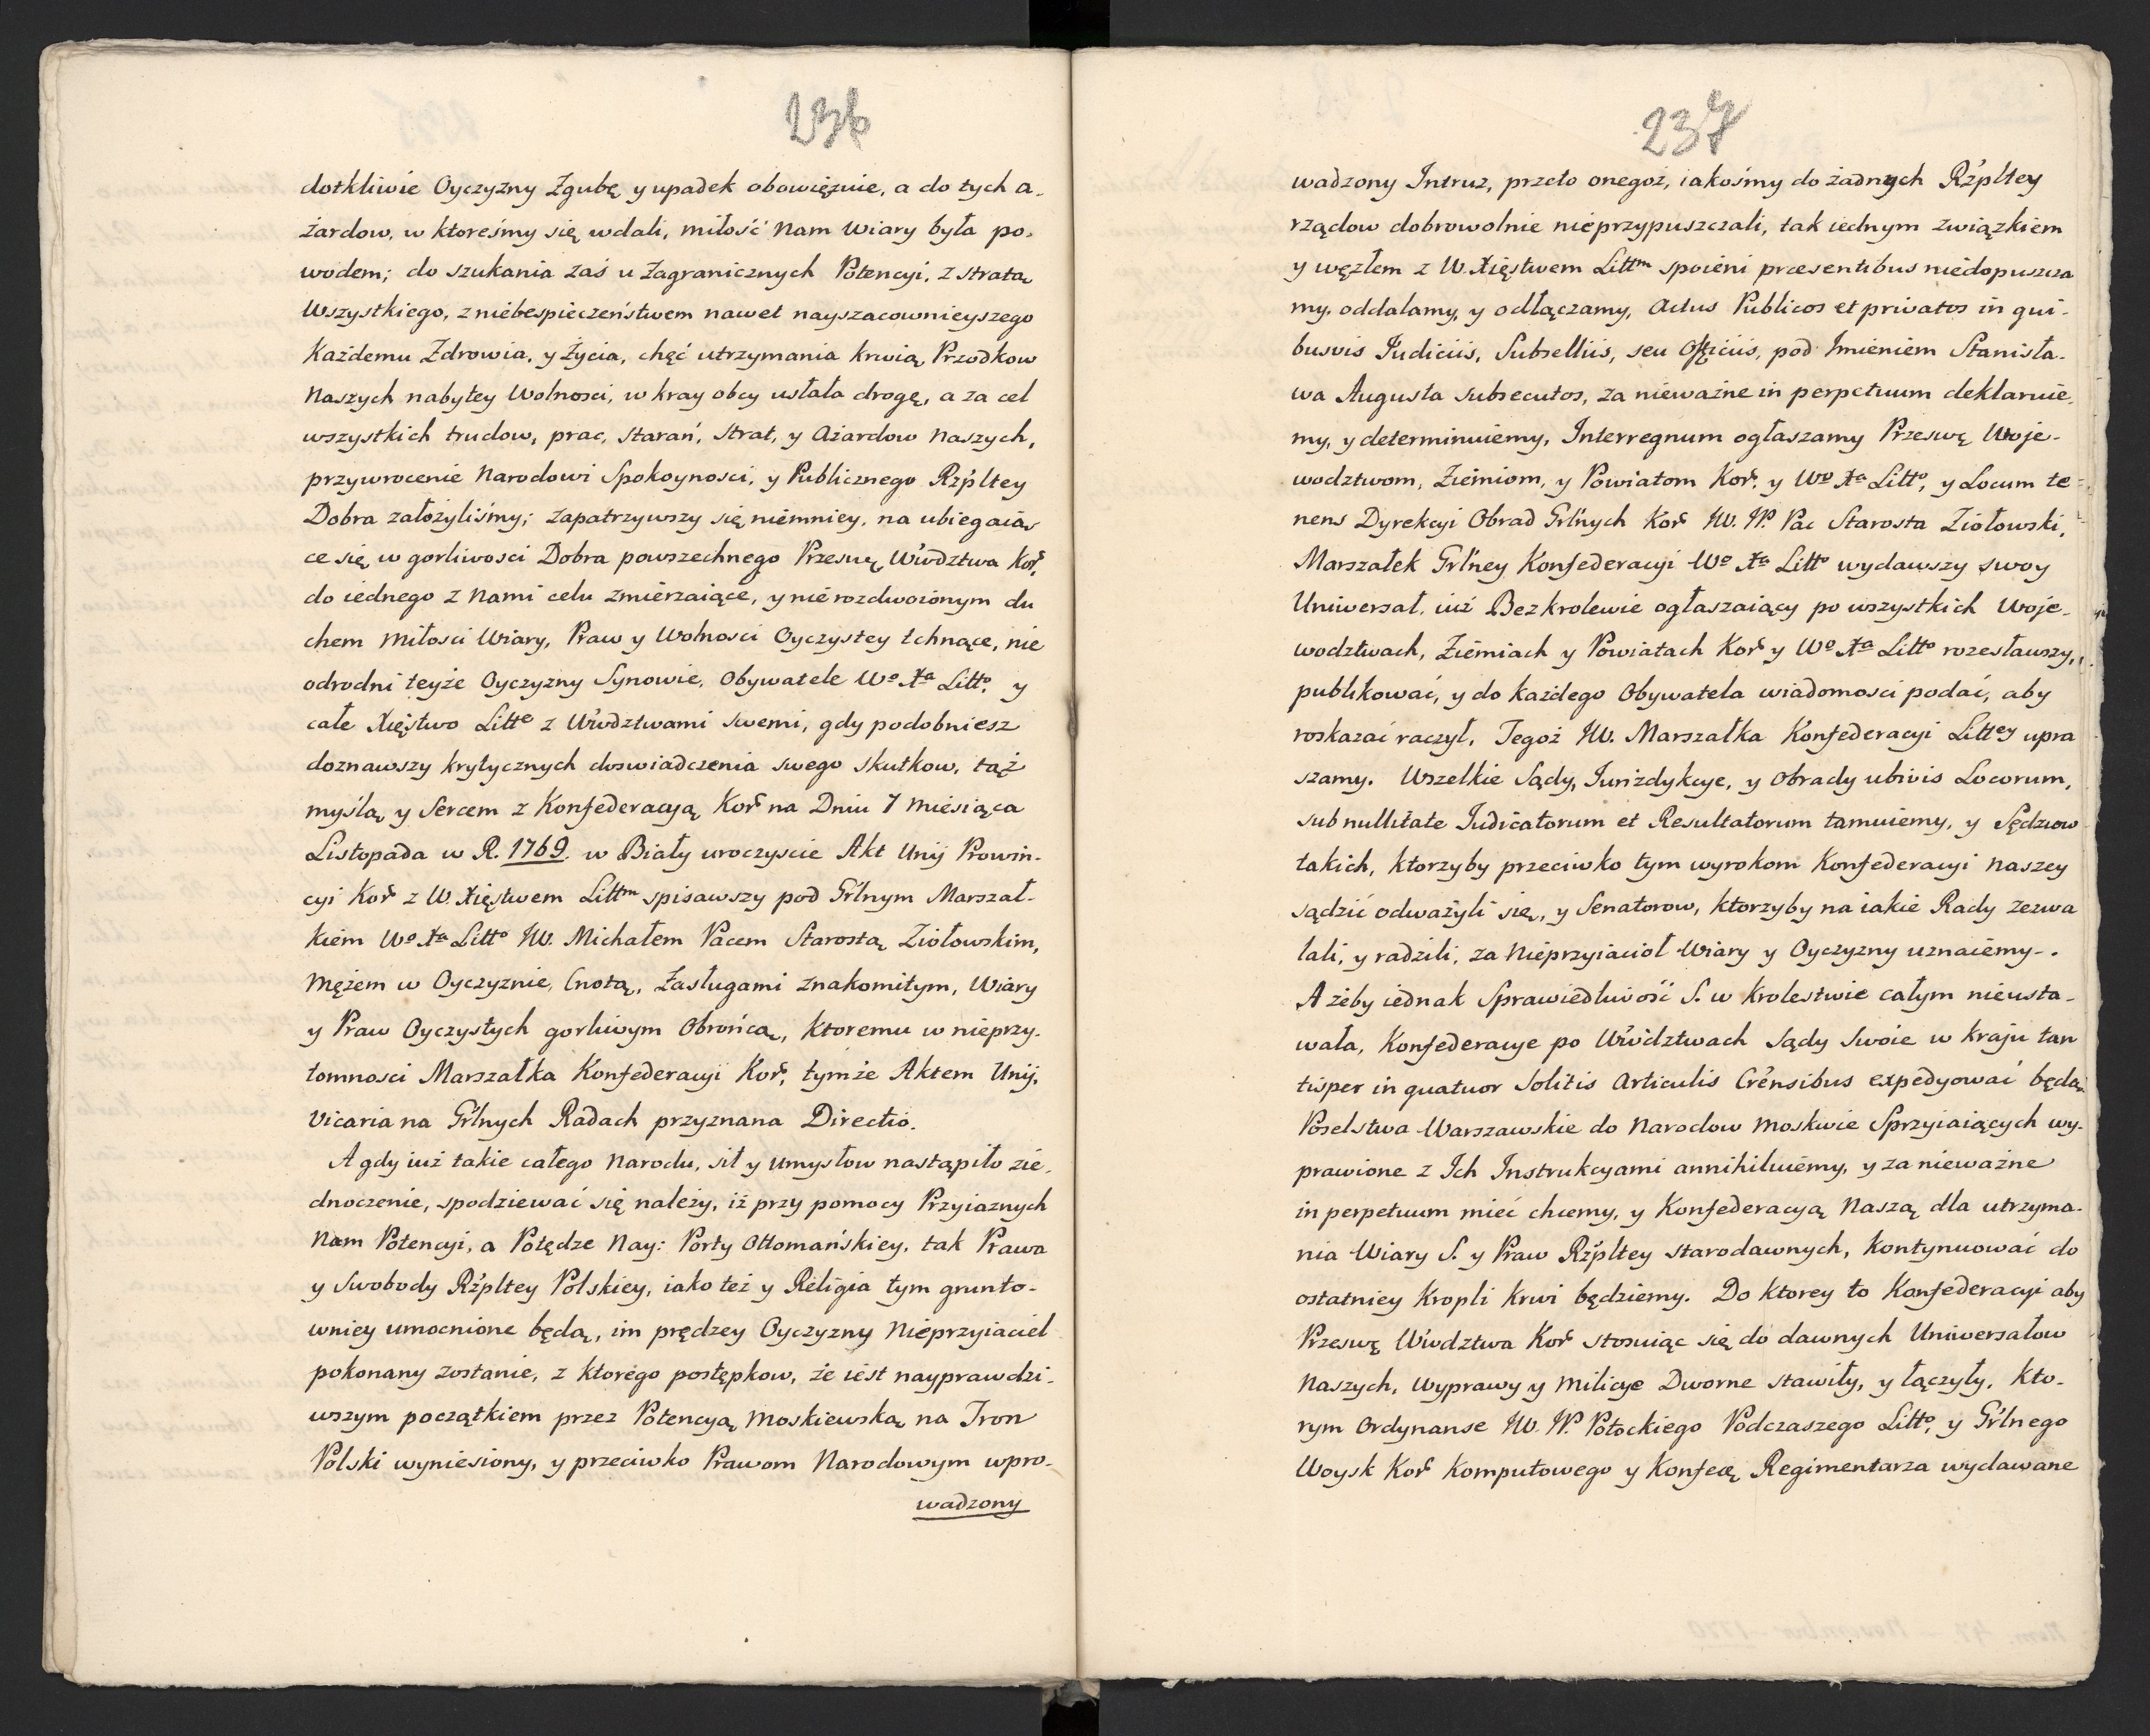 236
dotkliwie Oyczyzny Zgubę y upadek obowięznie, a do tych a-
żardow, w ktoreśmy się wdali, miłość Nam Wiary była po-
wodem; do szukania zaś u Zagranicznych Potencyi, z stratą
Wszystkiego, z niebespieczeństwem nawet nayszacownieyszego
Każdemu Zdrowia, y Życia, chęć utrzymania krwią Przodkow
Naszych nabytey Wolnosci, w kray obcy usłała drogę, a za cel
wszystkich trudow, prac, starań, strat, y Ażardow Naszych,
przywrocenie Narodowi Spokoynosci, y Publicznego Rżpltey
Dobra założyliśmy; zapatrzywszy się niemniey, na ubiegaią-
ce się w gorliwosci Dobra powszechnego Przeswę Wwdztwa Kor.
do iednego z Nami celu zmierzaiące, y nierozdwoionym du
chem Miłosci Wiary, Praw y Wolnosci Oyczystey tchnące, nie
odrodni teyże Oyczyzny Synowie, Obywatele Wo Xa Litto, y
całe Xięstwo Litte z Wwdztwami swemi, gdy podobniesz
doznawszy krytycznych doswiadczenia swego skutkow, taż
myślą y Sercem z Konfederacyą Kor na Dniu 7 Miesiąca
Listopada w R. 1769. w Biały uroczyscie Akt Unij Prowin-
cyi Kor z W. Xięstwem Littm spisawszy pod Grlnym Marszał-
kiem Wo Xa Litto JW. Michałem Pacem Starostą Ziołowskim,
Mężem w Oyczyznie, Cnotą, Zasługami znakomitym, Wiary
y Praw Oyczystych gorliwym Obrońcą, ktoremu w nieprzy-
tomnosci Marszałka Konfederacyi Kor, tymże Aktem Unij,
Vicaria na Grlnych Radach przyznana Directio.
A gdy iuż takie całego Narodu, sił y umysłow nastąpiło zie-
dnoczenie, spodziewać się należy, iż przy pomocy Przyiaznych
Nam Potencyi, a Potędze Nay: Porty Ottomańskiey, tak Prawa
y Swobody Rżpltey Polskiey, iako też y Religia tym grunto-
wniey umocnione będą, im prędzey Oyczyzny Nieprzyiaciel
pokonany zostanie, z ktorego postępkow, że iest nayprawdzi-
wszym początkiem przez Potencyą Moskiewską na Tron
Polski wyniesiony, y przeciwko Prawom Narodowym wpro-
wadzony
237
wadzony Intruz, przeto onegoż, iakośmy do żadnych Rżpltey
rządow dobrowolnie nieprzypuszczali, tak iednym związkiem
y węzłem z W. Xięstwem Littm spoieni præsentibus niedopuszcza
my, oddalamy, y odłączamy, Actus Publicos et privatos in qui-
busvis Iudiciis, Subselliis, seu Officiis, pod Imieniem Stanisła-
wa Augusta subsecutos, za nieważne in perpetuum deklaruie-
my, y determinuiemy, Interregnum ogłaszamy Przeswę Woje-
wodztwom, Ziemiom, y Powiatom Kor, y Wo Xa Litto, y Locum te-
nens Dyrekcyi Obrad Grlnych Kor JW. JP. Pac Starosta Ziołowski,
Marszałek Grlney Konfederacyi Wo Xa Litto wydawszy swoy
Uniwersał, iuż Bezkrolewie ogłaszaiący po wszystkich Woje-
wodztwach, Ziemiach y Powiatach Kor y Wo Xa Litto rozesławszy,
publikować, y do każdego Obywatela wiadomosci podać, aby
roskazać raczył, Tegoż JW. Marszałka Konfederacyi Littey upra
szamy. Wszelkie Sądy, Iurizdykcye, y Obrady ubivis Locorum,
sub nullitate Iudicatorum et Resultatorum tamuiemy, y Sędziow
takich, ktorzyby przeciwko tym wyrokom Konfederacyi Naszey
sądzić odważyli się, y Senatorow, ktorzyby na iakie Rady zezwa
lali, y radzili, za Nieprzyiacioł Wiary y Oyczyzny uznaiemy-.
A żeby iednak Sprawiedliwość S. w Krolestwie całym nieusta-
wała, Konfederacye po Wwdztwach Sądy Swoie w kraju tan
tisper in quatuor Solitis Articulis Crensibus expedyować będą
Poselstwa Warszawskie do Narodow Moskwie Sprzyiaiących wy-
prawione z Ich Instrukcyami annihiluiemy, y za nieważne
in perpetuum mieć chcemy, y Konfederacyą Naszą dla utrzyma-
nia Wiary S. y Praw Rżpltey starodawnych, kontynuować do
ostatniey Kropli Krwi będziemy. Do ktorey to Konfederacyi aby
Przeswę Wwdztwa Kor stosuiąc się do dawnych Uniwersałow
Naszych, Wyprawy y Milicye Dworne stawiły, y łączyły, kto-
rym Ordynanse JW. JP. Potockiego Podczaszego Litto, y Grlnego
Woysk Kor Komputowego y Konfeię Regimentarza wydawane